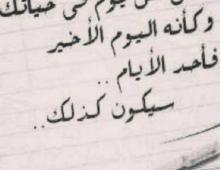 يوم في حياتك
وكأنه اليوم الأخير
فأحد الأيام ..
سيكون كذلك ..